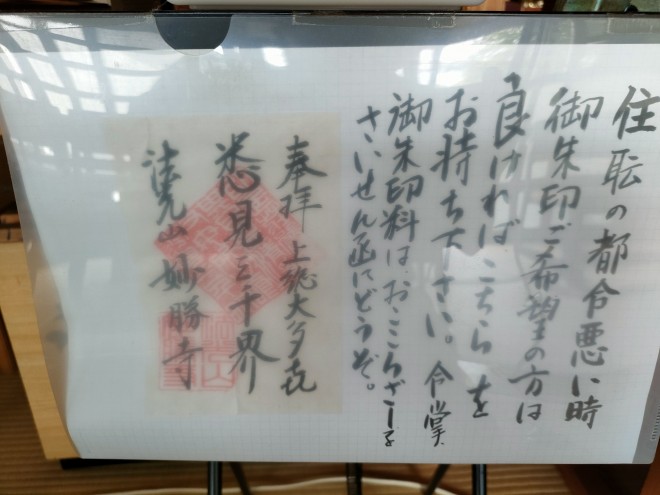 住職の都合悪い時
御朱印ご希望の方は
良ければこちらを
お持ち下さい。合掌
御朱印料はおこころざしを
さいせん函にどうぞ。
奉拝 上総大多喜
悉見三千界
法光山妙勝寺